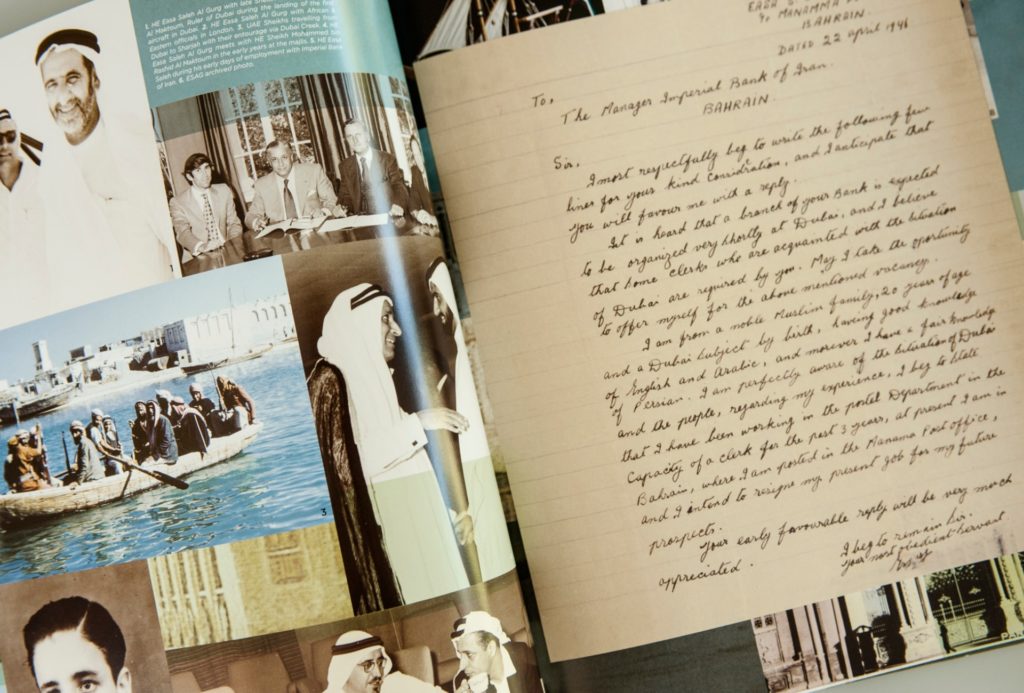 1. HE Easa Saleh Al Gurg with late
Al Maktoum, Ruler of Dubai during the landing of the first
aircraft in Dubai. 2. HE Easa Saleh Al Gurg with African &
Eastern officials in London. 3. UAE Sheikhs travelling from
Dubai to Sharjah with their entourage via Dubai Creek. 4.
Easa Saleh Al Gurg meets with HE Sheikh Mohammed bin
Rashid Al Maktoum in the early years at the majlis. 5. HE Easa
Saleh during his early days of employment with Imperial Bank
of Iran. 6. ESAG archived photo.
3
EASA
MANAMA
BAHRAIN.
DATED 22 april 1946
To,
The Manager Imperial Bank of Iran.
BAHRAIN.
Sir,
I most respectfully beg to write the following few
lines for your kind considration, and I anticipate that
you will favour me with a reply.
It is heard that a branch of your Bank is expected
to be organized very shortly at Dubai, and I believe
that some clerks who are acquainted with the situation
of Dubai are required by you. May I take the oportunity
to offer myself for the above mentioned vacancy.
I am from a noble Muslim family, 20 years of age
and a Dubai subject by birth, having good knowledge
of English and Arabic, and morever I have a fair knowledge
of Persian. I am perfectly aware of the situation of Dubai
and the people, regarding my experience, I beg to state
that I have been working in the postal Department in the
Capacity of a clerk for the past 3 years, at present I am in
Bahrain, where I am posted in the Manama Post office,
and I intend to resigne my present job for my future
prospects.
Your early favourable reply will be very much
appreciated.
I beg to remain Sir.
your most obedient Servant